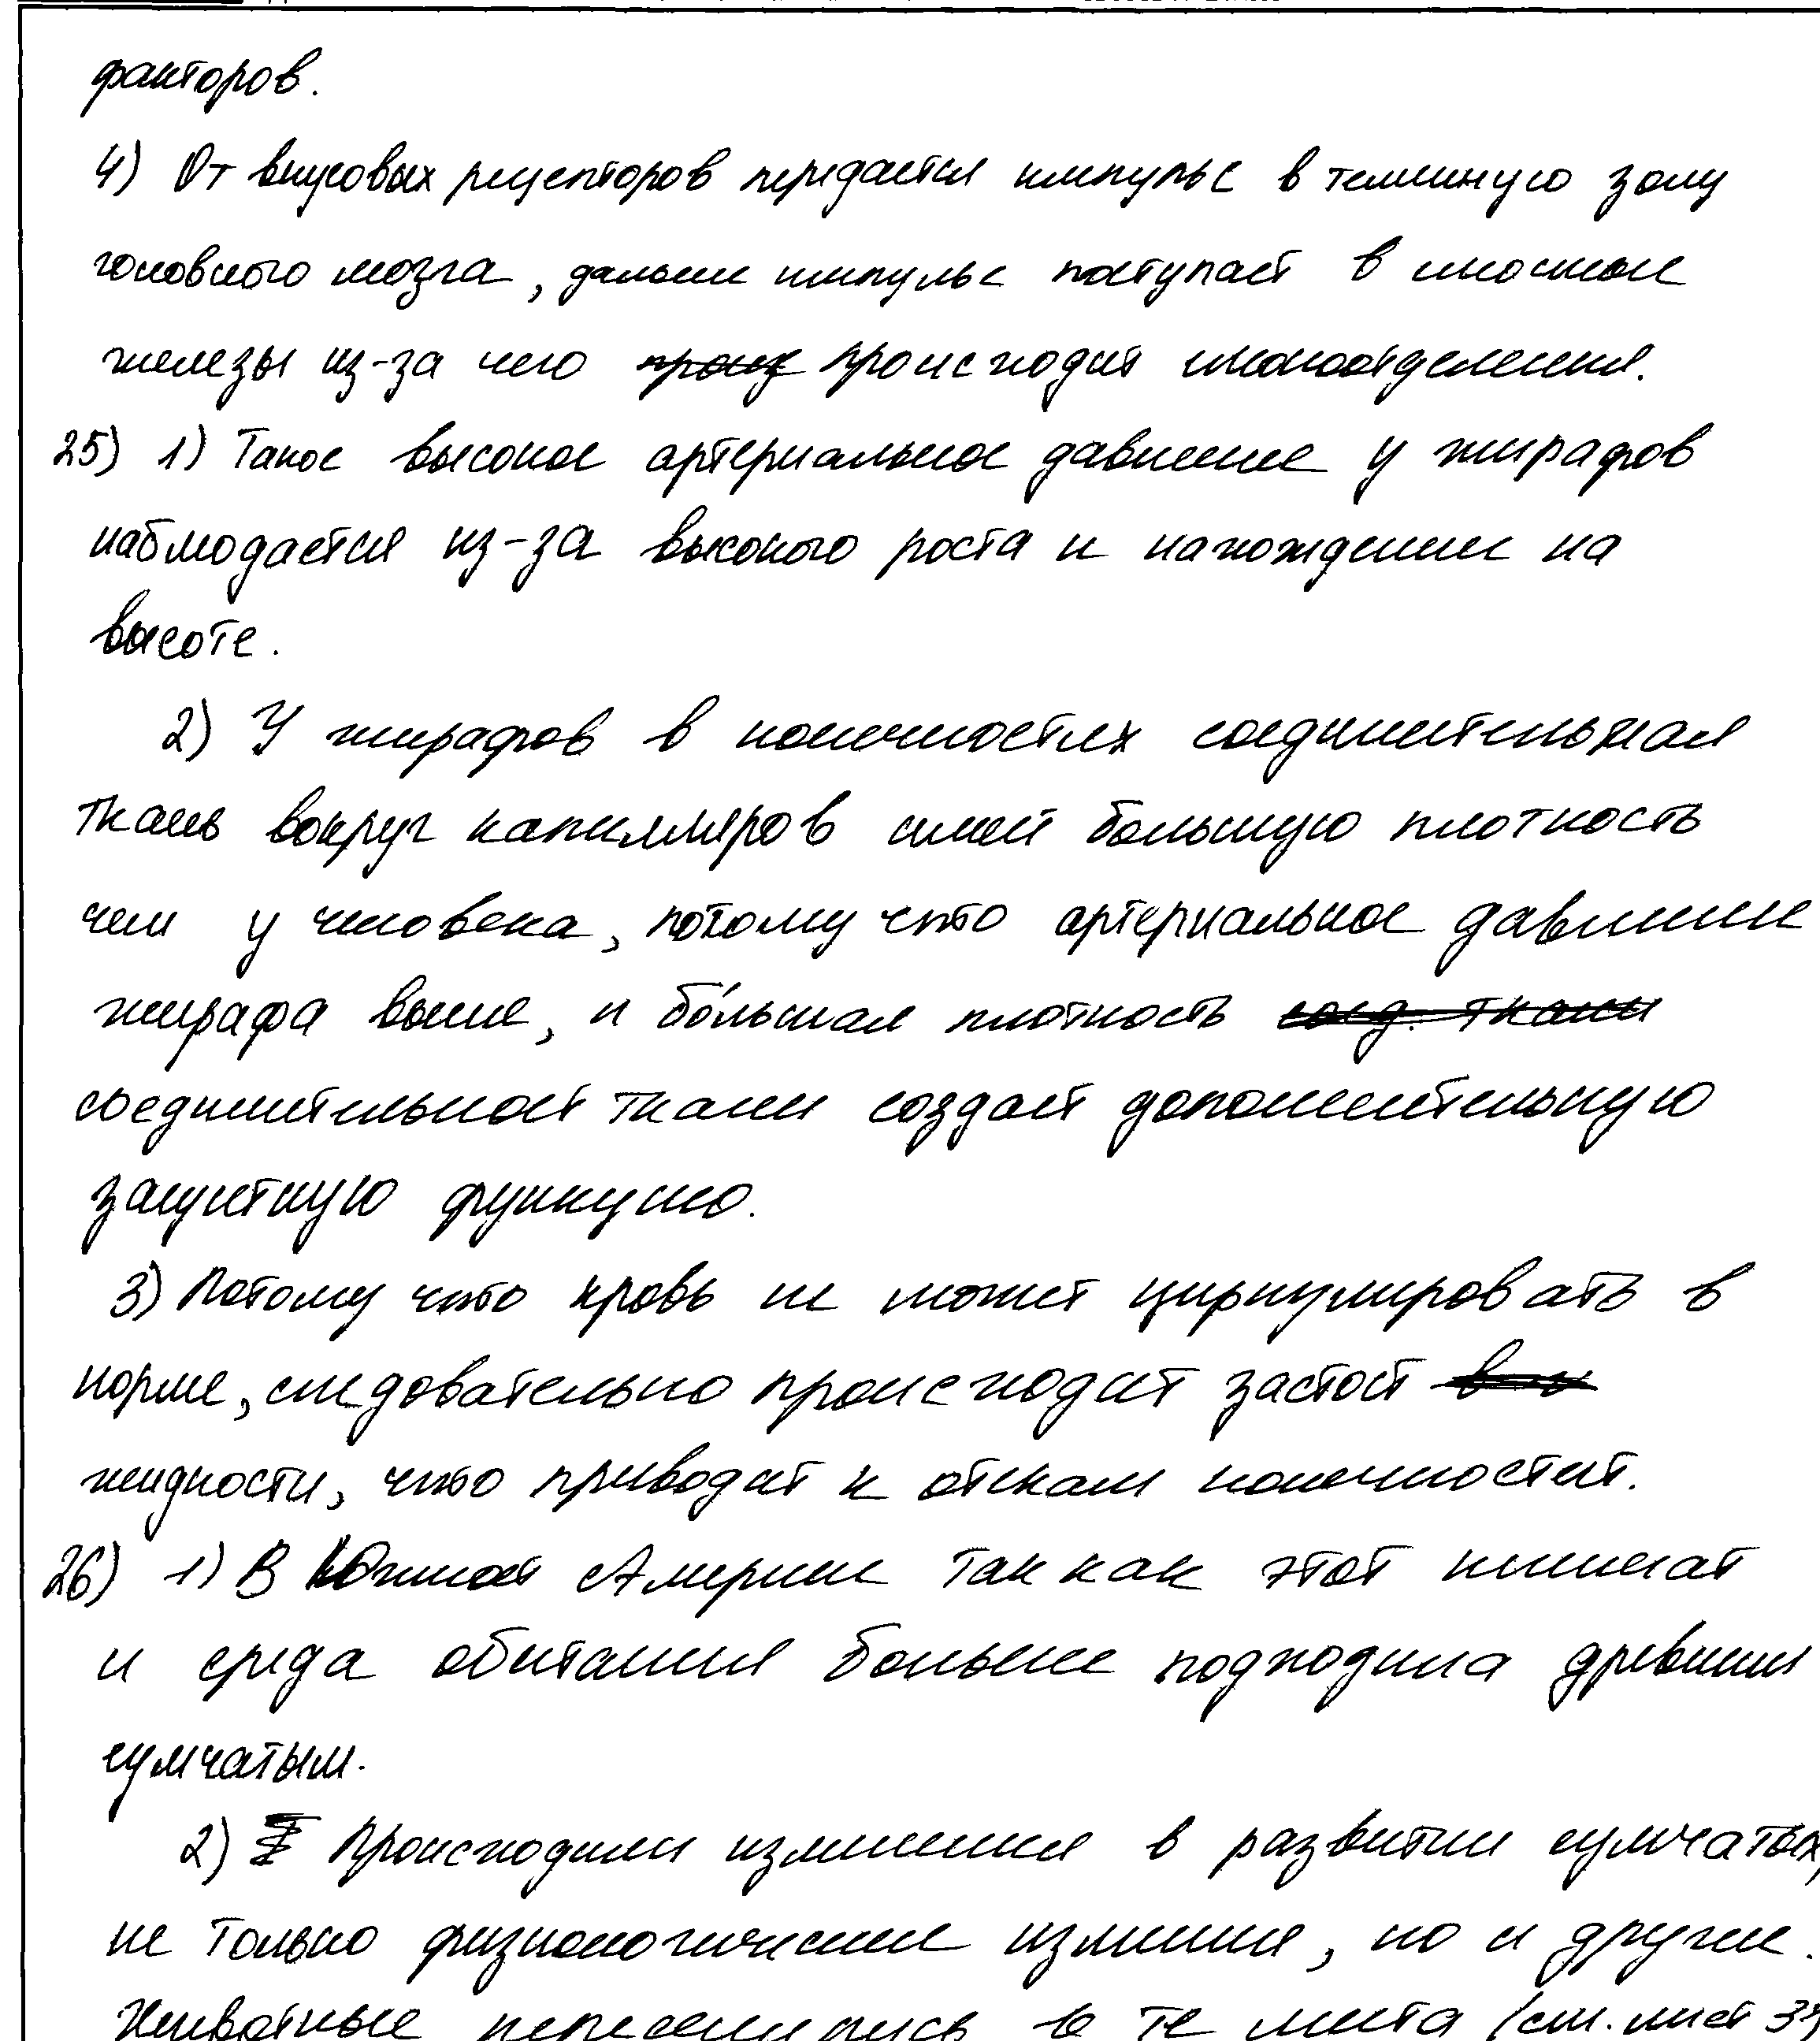 факторов.
4) От вкусовых рецепторов передается импульс в теменную зону
головного мозга, дальше импульс поступает в слюнные
железы из-за чего происходит слюноотделения.
25) 1) Такое высокое артериальное давление у жирафов
наблюдается из-за высокого роста и нахождение на
высоте.
2) У жирафов в конечностях соединительная
ткань вокруг капилляров имеет большую плотность
чем у человека, потому что артериальное давление
жирафа выше, и бо́льшая плотность соед. ткани
соединительной ткани создаёт дополнительную
защитную функцию.
3) Потому что кровь не может циркулировать в
норме, следовательно происходит застой
жидкости, что приводит к отёкам конечностей.
26) 1) В Южной Америке так как этот климат
и среда обитания больше подходила древним
сумчатым.
2) Происходили изменения в развитии сумчатых,
не только физиологические изменения, но и другие.
Животные переселились в те места (см. лист 3